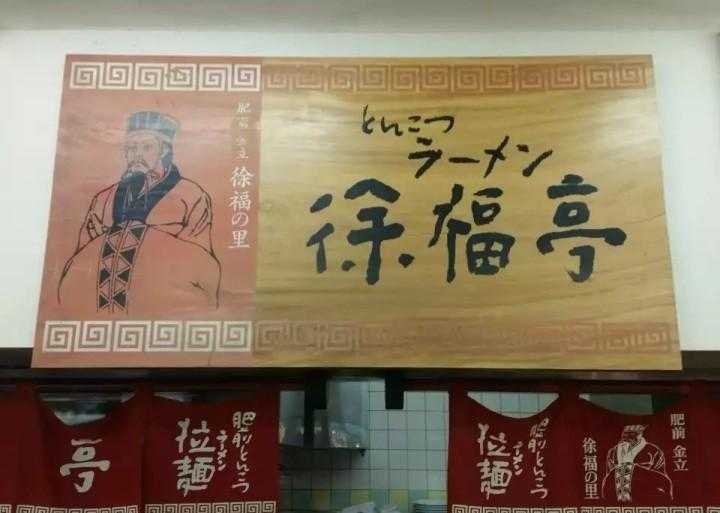 肥前 金立
徐福の里
とんこつ
ラーメン
徐福亭
亭
肥前とんこつ
ラーメン
拉麺
肥前とんこつ
ラーメン
拉麺
肥前 金立
徐福の里